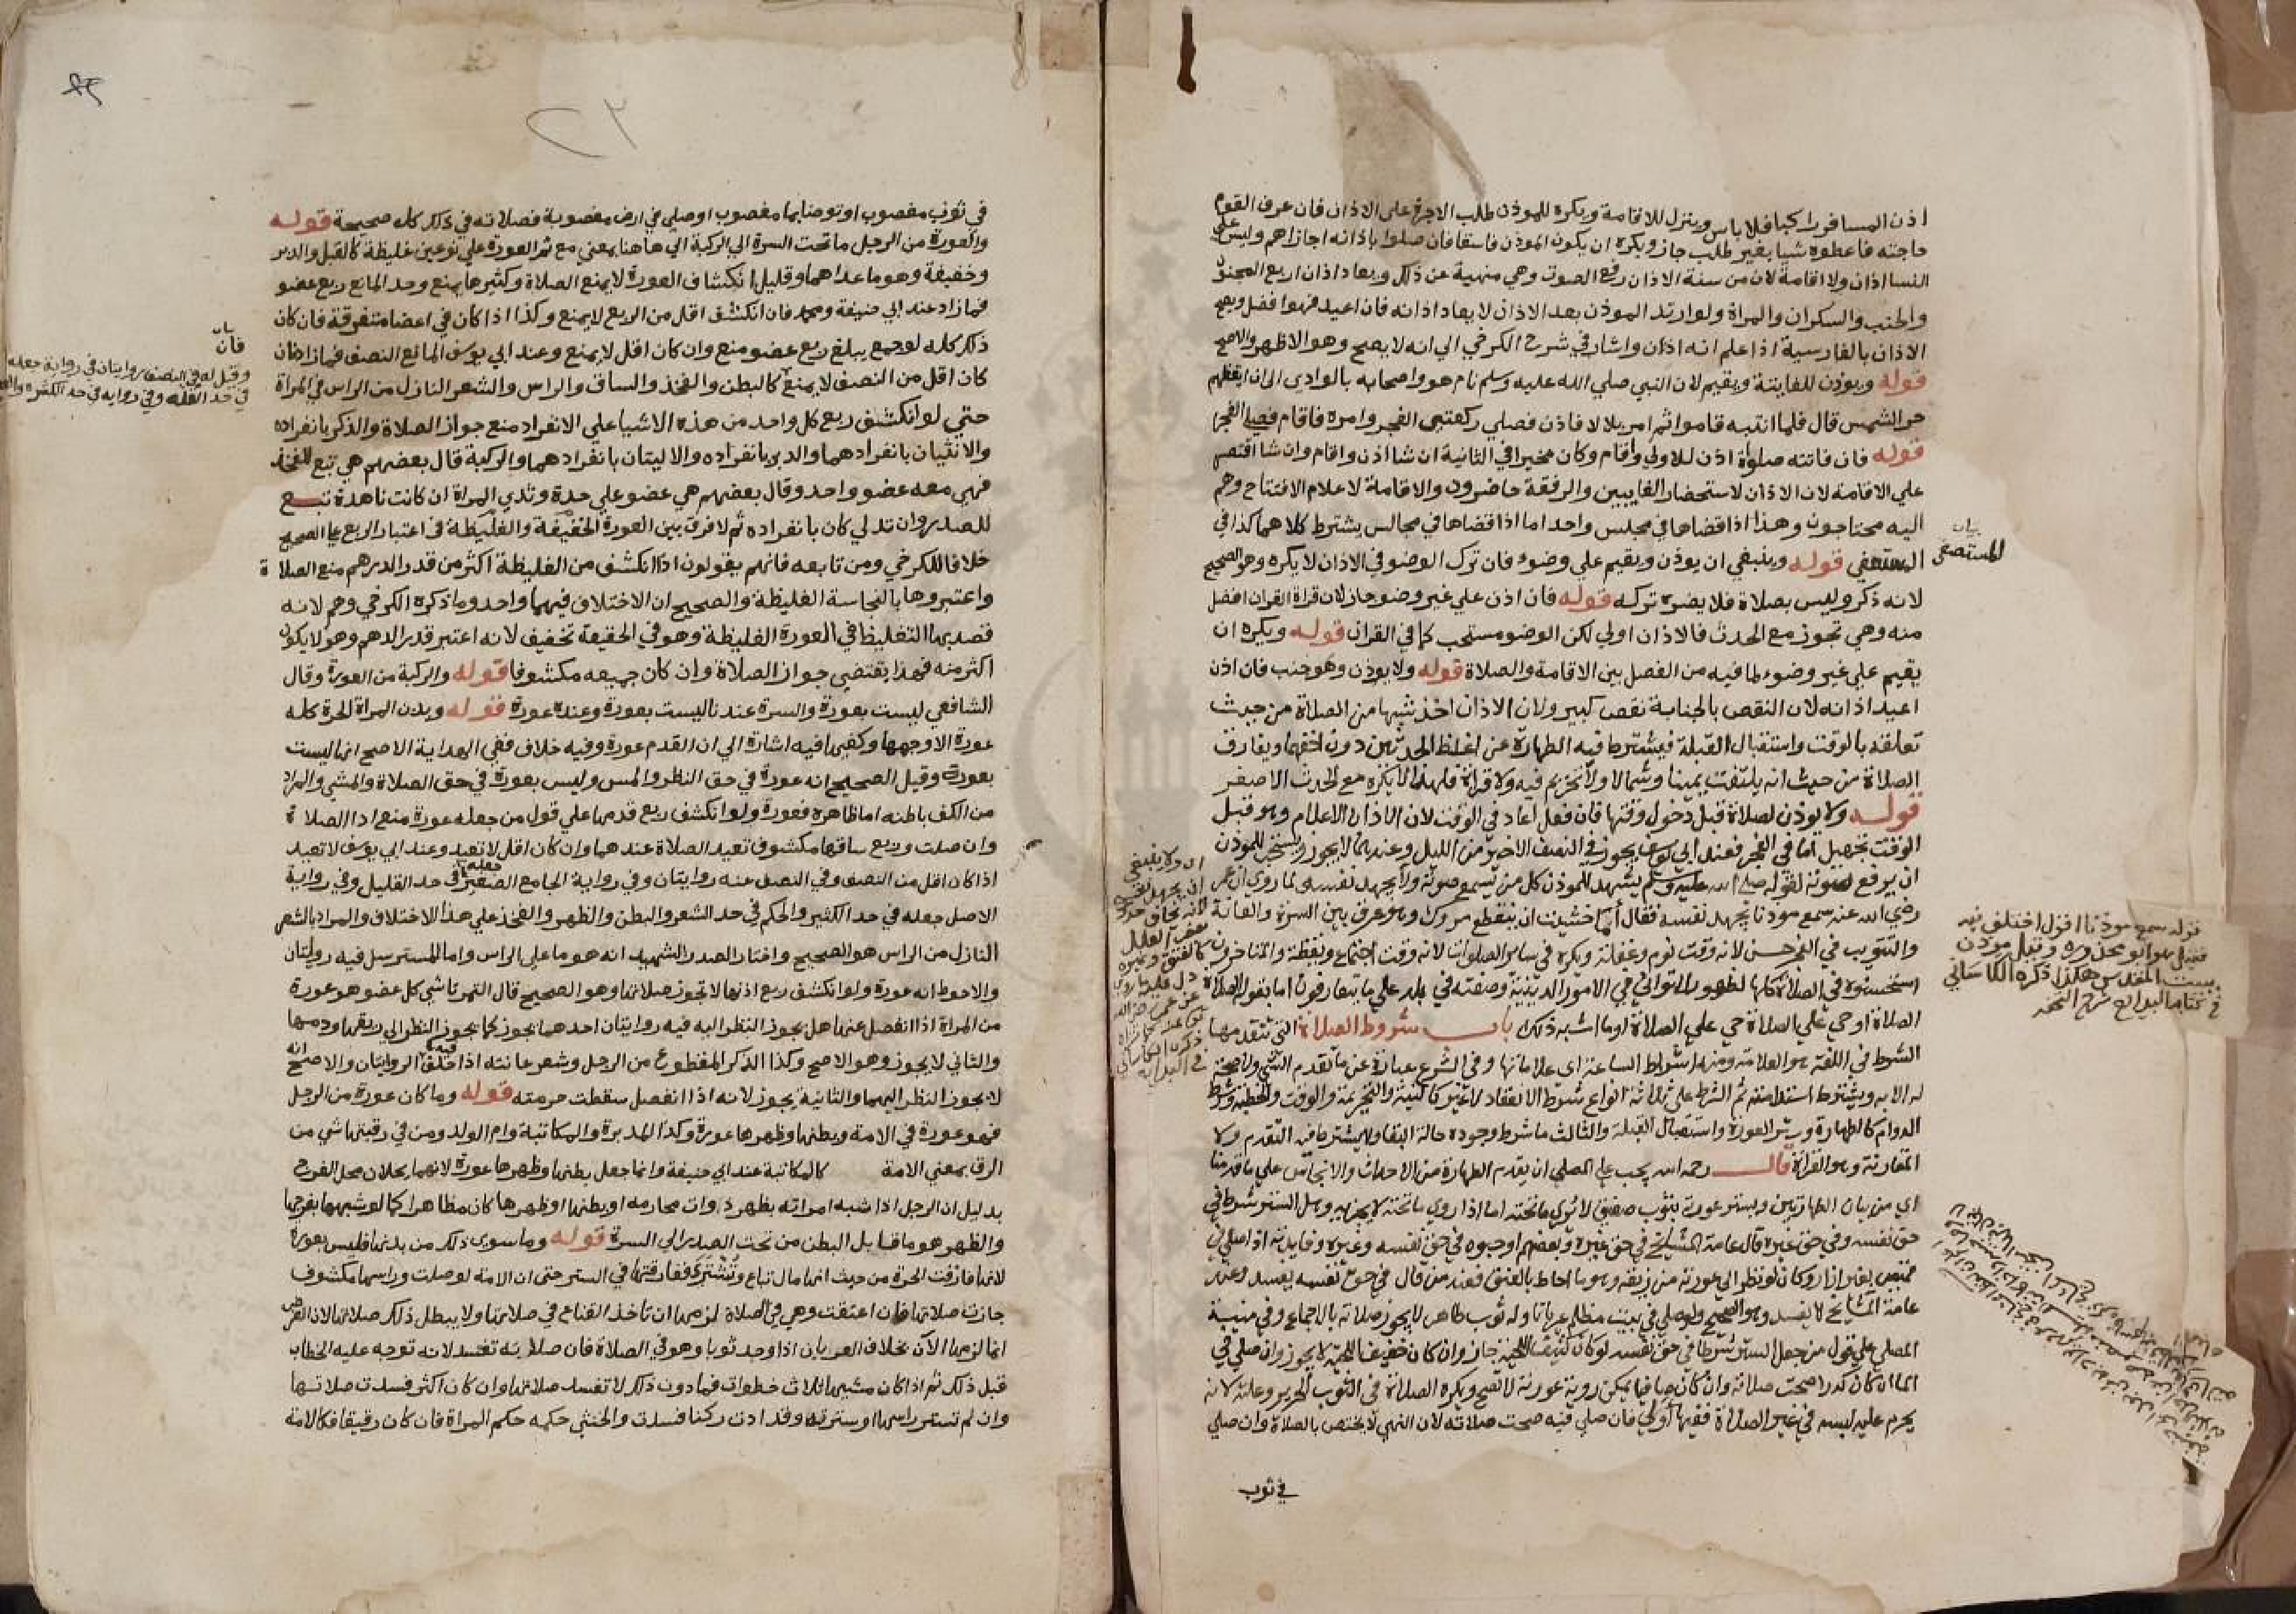 اذن المسافر راكبا فلا باس وينزل للاقامة ويكره للموذن طلب الاجرة على الاذان فان عرف القوم
حاجته فاعطوه شيا بغير طلب جاز ويكره ان يكون الموذن فاسقا فان صلوا باذانه اجزاهم وليس على
النسا اذان ولا اقامة لان من سنة الاذان رفع الصوت وهي منهية عن ذلك ويعاد اذان اربع المجنون
والجنب والسكران والمراة ولو ارتد الموذن بعد الاذان لا يعاد اذانه فان اعيد فهو افضل ويصح
الاذان بالفارسية اذا علم انه اذان واشار في شرح الكرخي الي انه لا يصح وهو الاظهر والاصح
قوله ويوذن للفايتة ويقيم لان النبي صلي الله عليه وسلم نام هو واصحابه بالوادي الى ان ايقظهم
حر الشمس قال فلما انتبه قاموا ثم امر بلالا فاذن فصلي ركعتي الفجر وامره فاقام فصلى الفجر
قوله فان فاتته صلوة اذن للاولي واقام وكان مخيرا في الثانية ان شا اذن واقام وان شا اقتصر
علي الاقامة لان الاذان لاستحضار الغايبين والرفقة حاضرون والاقامة لاعلام الافتتاح وهم
اليه محتاجون وهذا اذا قضاها في مجلس واحد اما اذا قضاها في مجالس يشترط كلاهما كذا في
المستصفي قوله وينبغي ان يوذن ويقيم علي وضوء فان ترك الوضو في الاذان لا يكره وهو الصحيح
لانه ذكر وليس بصلاة فلا يضره تركه قوله فان اذن علي غير وضو جاز لان قراة القران افضل
منه وهي تجوز مع الحدث فالاذان اولي لكن الوضو مستحب كما في القران قوله ويكره ان
يقيم علي غير وضوء لما فيه من الفصل بين الاقامة والصلاة قوله ولا يوذن وهو جنب فان اذن
اعيد اذانه لان النقص بالجنابة نقص كبير ولان الاذان اخذ شبها من الصلاة من حيث
تعلقه بالوقت واستقبال القبلة فيشترط فيه الطهارة عن اغلظ الحدثين دون اخفهما ويفارق
الصلاة من حيث انه يلتفت يمينا وشمالا ولا تحريم فيه ولا قراة فلهذا لا يكره مع الحدث الاصغر
قوله ولا يوذن لصلاة قبل دخول وقتها فان فعل اعاد في الوقت لان الاذان للاعلام وهو قبل
الوقت تجهيل اما في الفجر فعند ابي يوسف يجوز في النصف الاخير من الليل وعندهما لا يجوز ويستحب للموذن
ان يرفع صوته لقوله صلى الله عليه وسلم يشهد للموذن كل من يسمع صوته ولا يجهد نفسه لما روي ان عمر
رضي الله عنه سمع موذنا يجهد نفسه فقال اما خشيت ان ينقطع مروك وهو عرق بين السرة والعانة
والتثويب في الفجر حسن لانه وقت نوم وغفلة ويكره في ساير الصلوات لانه وقت اجتماع ويقظة والمتاخرون
استحسنوه في الصلاة كلها لظهور التواني في الامور الدينية وصفته في بلد علي ما يتعارفون اما بقوله الصلاة
الصلاة او حي علي الصلاة حي علي الصلاة او ما اشبه ذلك باب شروط الصلاة التي تتقدمها
الشرط في اللغة هو العلامة ومنه اشراط الساعة اي علاماتها وفي الشرع عبارة عن ما تقدم الشي ولا صحة
له الا به ويشترط استدامته ثم الشرط علي ثلاثة انواع شرط الانعقاد لا غير كالنية والتحريمة والوقت والخطبة وشرط
الدوام كالطهارة وستر العورة واستقبال القبلة والثالث ما شرط وجوده حالة البقا ولا يشترط فيه التقدم ولا
المقارنة وهو القراة قال رحمه الله يجب على المصلي ان يقدم الطهارة من الاحداث والانجاس علي ما قدمنا
اي من بيان الطهارتين ويستر عورته بثوب صفيق لا يري ما تحته اما اذا روي ما تحته لا يجزيه وهل الستر شرط في
حق نفسه وفي حق غيره قال عامة المشايخ في حق غيره وبعضهم اوجبوه في حق نفسه وغيره وفايدته اذا صلي في
قميص بغير ازار وكان لو نظر الى عورته من زيقه وهو ما احاط بالعنق فعند من قال في حق نفسه يفسد وعند
عامة المشايخ لا يفسد وهو الصحيح ولو صلي في بيت مظلم عريانا وله ثوب طاهر لا يجوز صلاته بالاجماع وفي منية
المصلي علي قول من جعل الستر شرطا في حق نفسه لو كان كثيف اللحية جاز وان كان خفيف اللحية لا يجوز وان صلي في
الما ان كان كدرا صحت صلاته وان كان صافيا يمكن روية عورته لا تصح ويكره الصلاة في الثوب الحرير وعلته لانه
يحرم عليه لبسه في غير الصلاة ففيها اولي فان صلي فيه صحت صلاته لان النهي لا يختص بالصلاة وان صلي
في ثوب
بيان
المستصفى
قوله سمع موذنا اقول اختلف فيه
فقيل هو ابو محذورة وقيل موذن
بيت المقدس هكذا ذكره الكاساني
في كتابه البدايع شرح التحفة
في ثوب مغصوب او توضا بما مغصوب او صلي في ارض مغصوبة فصلاته في ذلك كله صحيحة قوله
والعورة من الرجل ما تحت السرة الي الركبة الي هاهنا بمعني مع ثم العورة علي نوعين غليظة كالقبل والدبر
وخفيفة وهو ما عداهما وقليل انكشاف العورة لا يمنع الصلاة وكثيرها يمنع وحد المانع ربع عضو
فما زاد عند ابي حنيفة ومحمد فان انكشف اقل من الربع لا يمنع وكذا اذا كان في اعضا متفرقة فان كان
ذلك كله لو جمع يبلغ ربع عضو منع وان كان اقل لا يمنع وعند ابي يوسف المانع النصف فما زاد فان
كان اقل من النصف لا يمنع كالبطن والفخذ والساق والراس والشعر النازل من الراس في المراة
حتي لو انكشف ربع كل واحد من هذه الاشيا علي الانفراد منع جواز الصلاة والذكر بانفراده
والانثيان بانفرادهما والدبر بانفراده والاليتان بانفرادهما والركبة قال بعضهم هي تبع للفخذ
فهي معه عضو واحد وقال بعضهم هي عضو علي حدة وثدي المراة ان كانت ناهدة تبع
للصدر وان تدلي كان بانفراده ثم لا فرق بين العورة الخفيفة والغليظة في اعتبار الربع على الصحيح
خلافا للكرخي ومن تابعه فانهم يقولون اذا انكشف من الغليظة اكثر من قدر الدرهم منع الصلاة
واعتبروها بالنجاسة الغليظة والصحيح ان الاختلاف فيهما واحد وما ذكره الكرخي وهم لانه
قصد بهذا التغليظ في العورة الغليظة وهو في الحقيقة تخفيف لانه اعتبر قدر الدرهم وهو لا يكون
اكثر منه فهذا يقتضي جواز الصلاة وان كان جميعه مكشوفا قوله والركبة من العورة وقال
الشافعي ليست بعورة والسرة عندنا ليست بعورة وعنده عورة قوله وبدن المراة الحرة كله
عورة الا وجهها وكفيها فيه اشارة الي ان القدم عورة وفيه خلاف ففي الهداية الاصح انها ليست
بعورة وقيل الصحيح انه عورة في حق النظر والمس وليس بعورة في حق الصلاة والمشي والمراد
من الكف باطنه اما ظاهره فعورة ولو انكشف ربع قدمها علي قول من جعله عورة منع ادا الصلاة
وان صلت وربع ساقها مكشوف تعيد الصلاة عندهما وان كان اقل لا تعيد وعند ابي يوسف لا تعيد
اذا كان اقل من النصف وفي النصف عنه روايتان وفي رواية الجامع الصغير جعله في حد القليل وفي رواية
الاصل جعله في حد الكثير والحكم في حد الشعر والبطن والظهر والفخذ علي هذا الاختلاف والمراد بالشعر
النازل من الراس هو الصحيح واختار الصدر الشهيد انه هو ما على الراس واما المسترسل فيه روايتان
والاحوط انه عورة ولو انكشف ربع اذنها لا تجوز صلاتها وهو الصحيح قال التمرتاشي كل عضو هو عورة
من المراة اذا انفصل عنها هل يجوز النظر اليه فيه روايتان احدهما يجوز كما يجوز النظر الي ريقها ودمها
والثاني لا يجوز وهو الاصح وكذا الذكر المقطوع من الرجل وشعر عانته اذا حلق فيه الروايتان والاصح انه
لا يجوز النظر اليهما والثانية يجوز لانه اذا انفصل سقطت حرمته قوله وما كان عورة من الرجل
فهو عورة في الامة وبطنها وظهرها عورة وكذا المدبرة والمكاتبة وام الولد ومن في رقبتها شي من
الرق بمعني الامة كالمكاتبة عند ابي حنيفة وانما جعل بطنها وظهرها عورة لانهما يحلان محل الفرج
بدليل ان الرجل اذا شبه امراته بظهر ذوات محارمه او بطنها او ظهرها كان مظاهرا كما لو شبهها بفرجها
والظهر هو ما قابل البطن من تحت الصدر الي السرة قوله وما سوي ذلك من بدنها فليس بعورة
لانها فارقت الحرة من حيث انها مال تباع وتشتري ففارقتها في الستر حتي ان الامة لو صلت وراسها مكشوف
جازت صلاتها فان اعتقت وهي في الصلاة لزمها ان تاخذ القناع في صلاتها ولا يبطل ذلك صلاتها لان الفرض
انما لزمها الآن بخلاف العريان اذا وجد ثوبا وهو في الصلاة فان صلاته تفسد لانه توجه عليه الخطاب
قبل ذلك ثم اذا كان مشيها ثلاث خطوات فما دون ذلك لا تفسد صلاتها وان كان اكثر فسدت صلاتها
وان لم تستر راسها او سترته وقد ادت ركنا فسدت والخنثي حكمه حكم المراة فان كان رقيقا فكالامة
بيان
فان
وقيل له في النصف روايتان في رواية جعله
في حد القلة وفي رواية في حد الكثرة